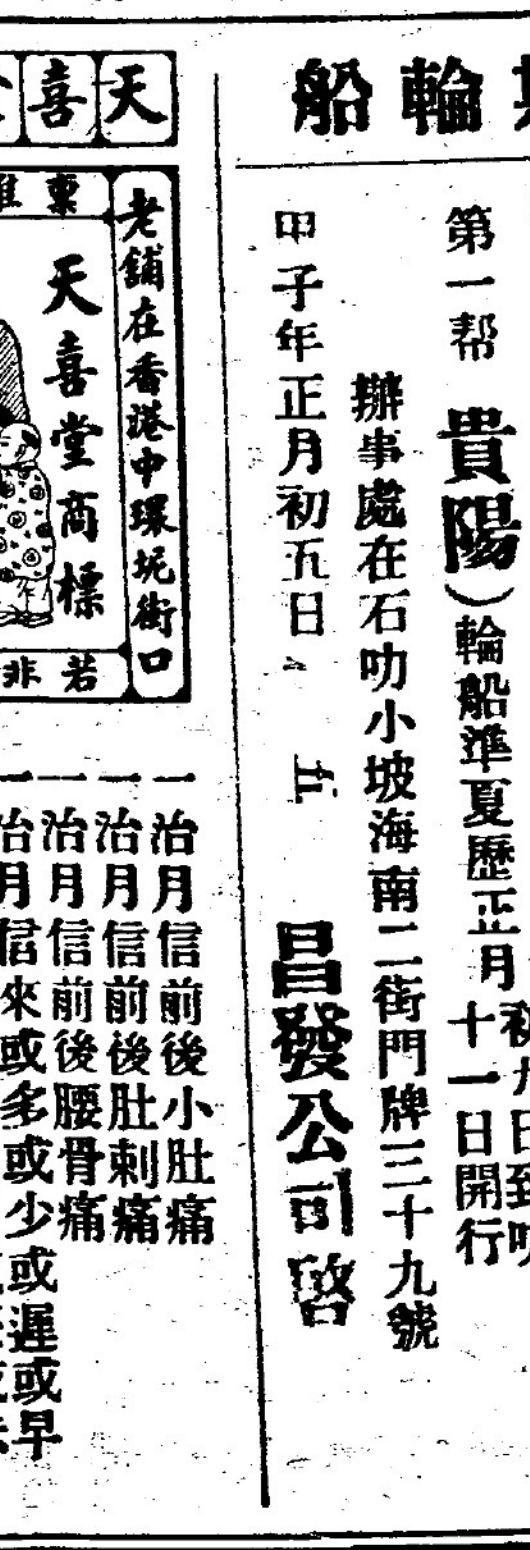 輪船
第一帮 貴陽)輪船準夏歷正月
初九日到叻
十一日開行
辦事處在石叻小坡海南二街門牌三十九號
甲子年正月初五日 五
昌發公司啓
天喜
老舖在香港中環坭街口
天喜堂商標
若非
一治月信前後小肚痛
一治月信前後肚刺痛
一治月信前後腰骨痛
一治月信來或多或少
或遲或早